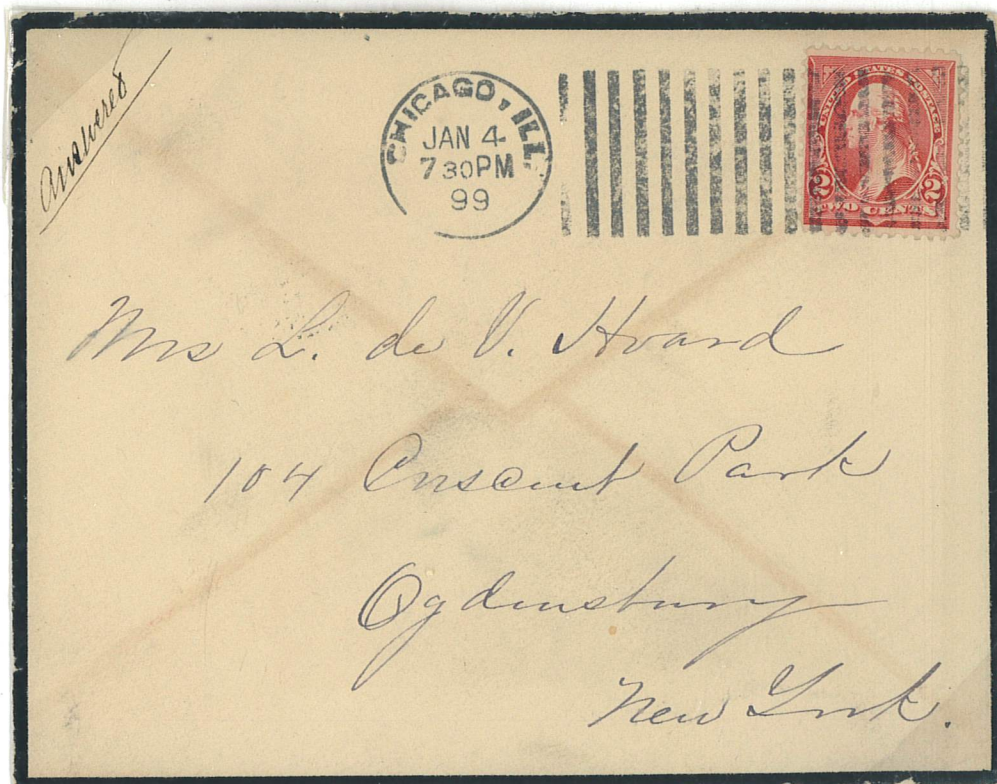 Answered
CHICAGO, ILL.
JAN 4
7 30 PM
99
UNITED STATES POSTAGE
2 2
TWO CENTS
Mrs L. de V. Hoard
104 Crescent Park
Ogdensburg
New York.